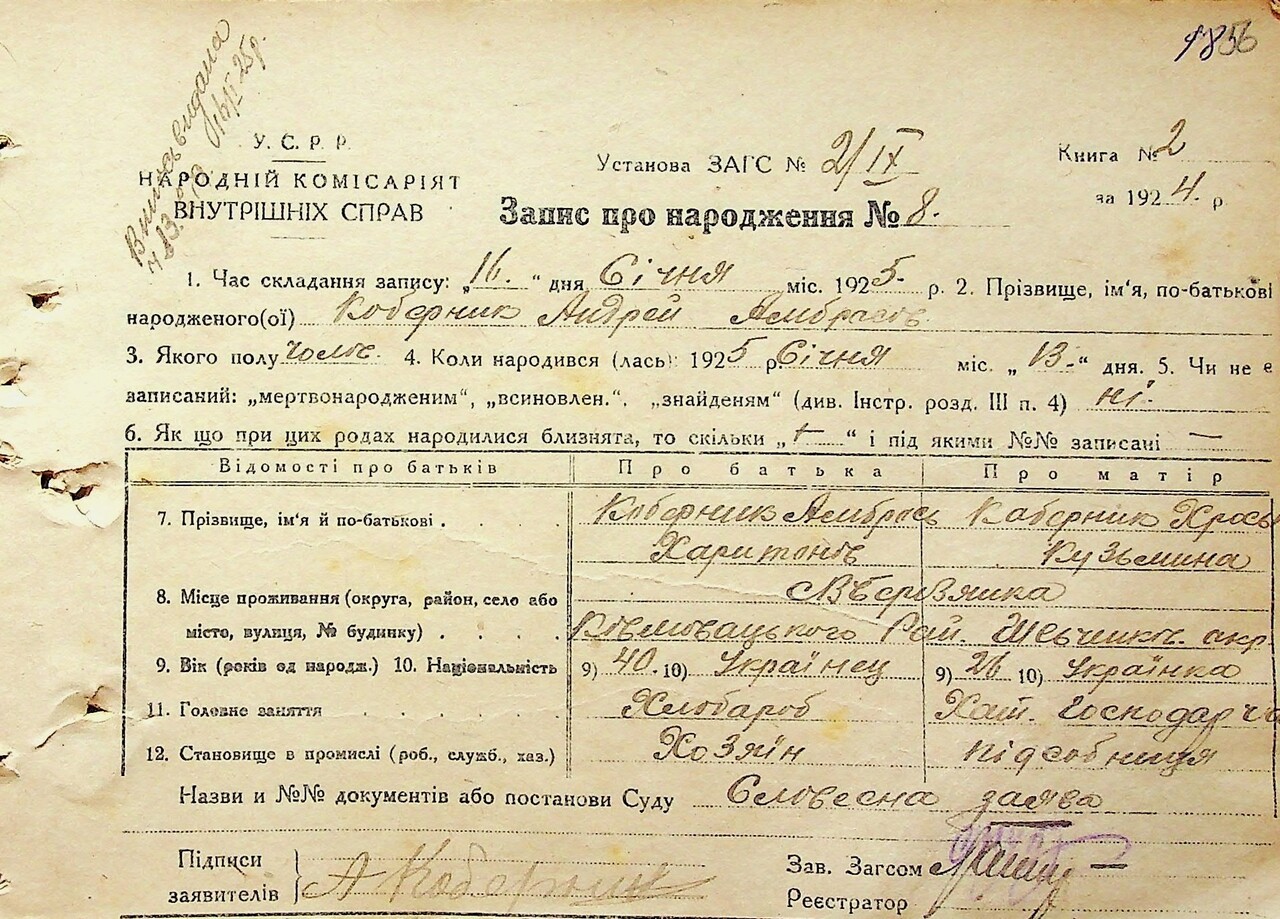 1856
Виписъ видана
16/І 25р.
У. С. Р. Р.
НАРОДНІЙ КОМІСАРІЯТ
ВНУТРІШНІХ СПРАВ
Установа ЗАГС № 2/IX
Книга № 2
за 1924. р.
Запис про народження № 8.
1. Час складання запису: „16. “ дня Січня міс. 1925. р. 2. Прізвище, ім'я, по-батькові
народженого(ої) Коберник Андрей Амбросов.
3. Якого полу Чолов. 4. Коли народився (лась): 1925 р. Січня міс. „ 13.“ дня. 5. Чи не є
записаний: „мертвонародженим“, „всиновлен.“, „знайденям“ (див. Інстр. розд. III п. 4) ні.
6. Як що при цих родах народилися близнята, то скільки „ — “ і під якими №№ записані —
Відомості про батьків Про батька Про матір
7. Прізвище, ім'я й по-батькові . . . . . Коберник Амбрось Каберник Хрось
Харитонов Кузьмина
8. Місце проживання (округа, район, село або с. В Березянка
місто, вулиця, № будинку) . . . . Рай. Шевченков. окр
9. Вік (років од народж.) 10. Національність 9) 40. 10) Українец 9) 26 10) Українка
11. Головне заняття . . . . . Хлобароб Хат. Господарч
12. Становище в промислі (роб., служб., хаз.) Хозяїн підсобниця
Назви и №№ документів або постанови Суду Словесна заява
Підписи
заявителів } А Коберник
Зав. Загсом
Реєстратор